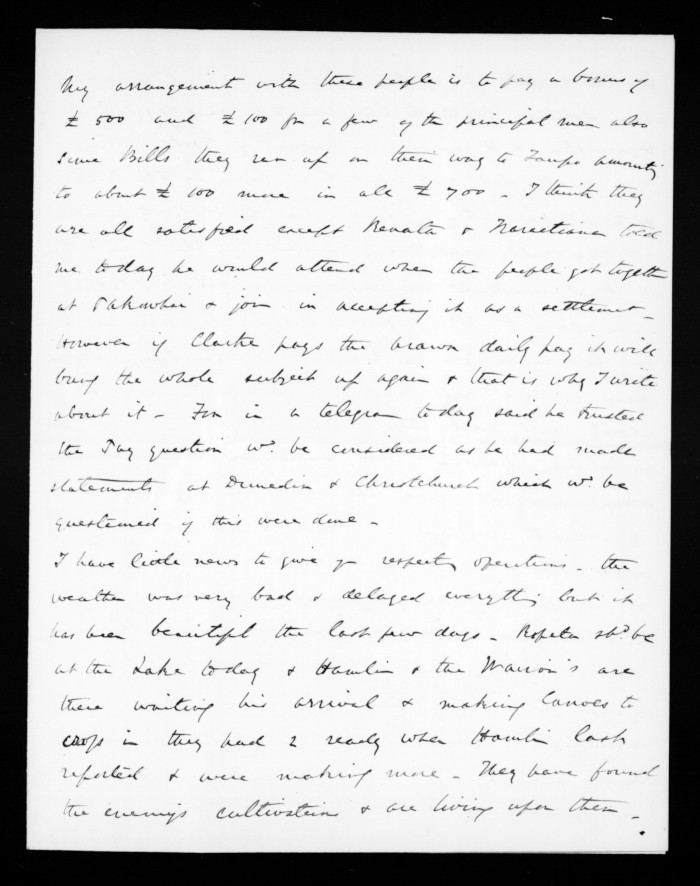 My arrangement with these people is to pay a bonus of
£500 and £100 for a few of the principal men also
some Bills they ran up on their way to Taupo amounting
to about £100 more in all £700 - I think they
are all satisfied except Renata & Karaitiana told
me today he would attend when the people got together
at Pakowhai & join in accepting it as a settlement -
However if Clarke pays the Arawa daily pay it will
bring the whole subject up again & that is why I write
about it - Fox in a telegram today said he trusted
the Pay question wd. be considered as he had made
statements at Dunedin & Christchurch which wd. be
questioned if this were done -
I have little news to give yr respectg operations - the
weather was very bad & delayed everything but it
has been beautiful the last few days - Ropata shd. be
at the Lake today & Hamlin & the Wairoa's are
there waiting his arrival & making Canoes to
cross in they had 2 ready when Hamlin last
reported & were making more - They have found
the enemys cultivations & are living upon them -